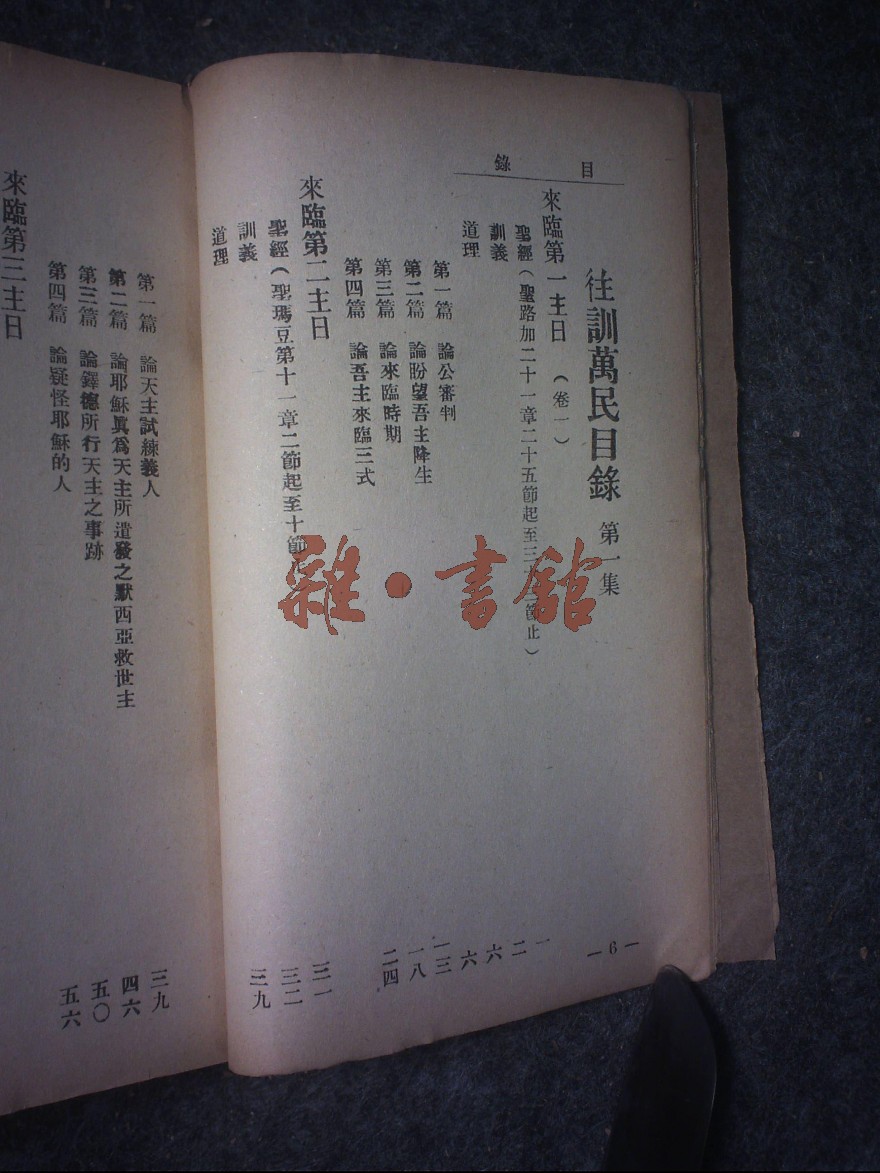 目錄
往訓萬民目錄 第一集
—6—
來臨第一主日 (卷一)
聖經(聖路加二十一章二十五節起至三十節止) 一
訓義 二
道理 六
第一篇 論公審判 六
第二篇 論盼望吾主降生 一三
第三篇 論來臨時期 一八
第四篇 論吾主來臨三式 二四
來臨第二主日
聖經(聖瑪豆第十一章二節起至十節 三一
訓義 三二
道理 三九
第一篇 論天主試練義人 三九
第二篇 論耶穌眞爲天主所遣發之默西亞救世主 四六
第三篇 論鐸德所行天主之事跡 五〇
第四篇 論疑怪耶穌的人 五六
來臨第三主日
雜·書館